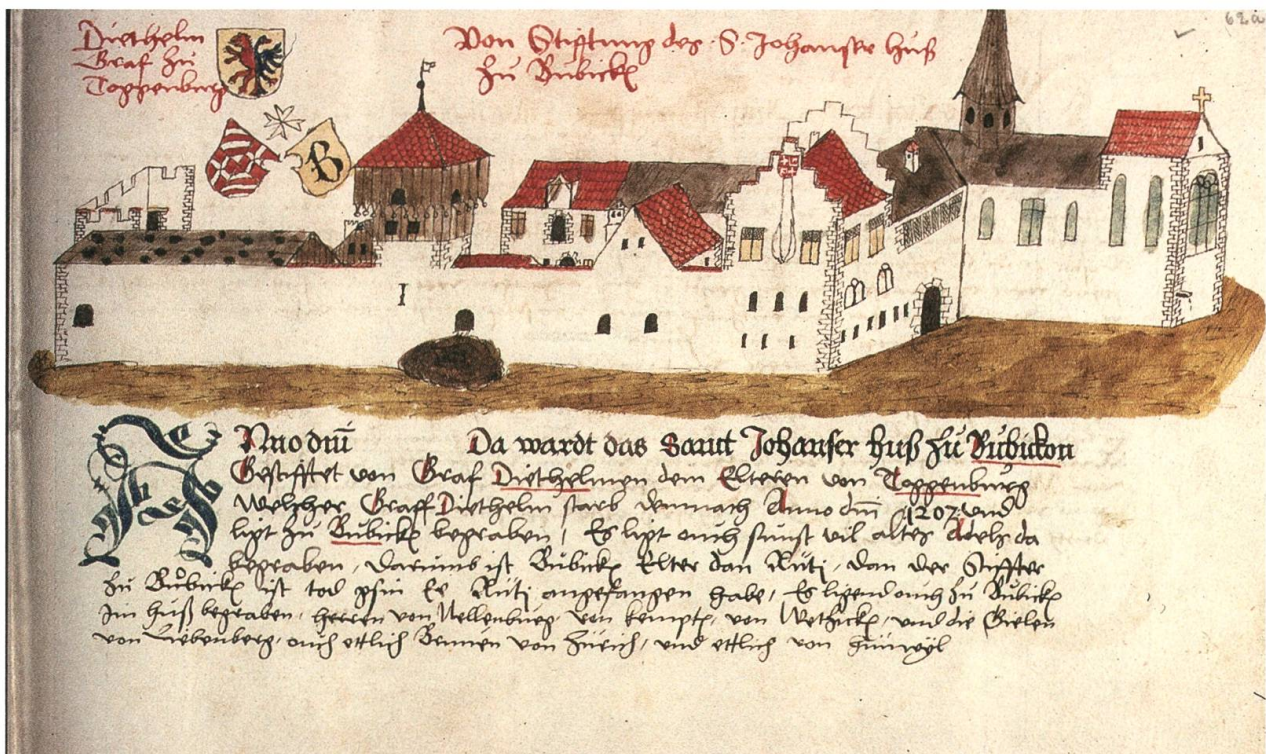 Diethelm
Graf zu
Toggenburg
Von Stifftung des S. Johanser huß
zu Bůbickꝭ
62a
B
I
Anno dnī Da wardt das Sannt Johanser huß zů Bůbickon
Gestifftet von Graf Diethelmen dem Elteren von Toggenburg
Welcher Graff Diethelm starb demnach Anno dnī 1207 und
ligt zů Bubickꝭ begraben, Es ligt ouch sunst vil altes Adels da
begraben, Darumb ist Bůbickꝭ Elter dan Rüti, dan der Stiffter
zů Bůbickꝭ ist tod gsin Ee Rüti angefangen habe, Es ligend ouch zů Bůbickꝭ
Im huß begraben, herren von Nellenburg, von kemptꝭ, von Wetzickꝭ, und die Gielen
von Liebenberg, ouch ettlich Brunen von Zürich, und ettlich von hünwyl